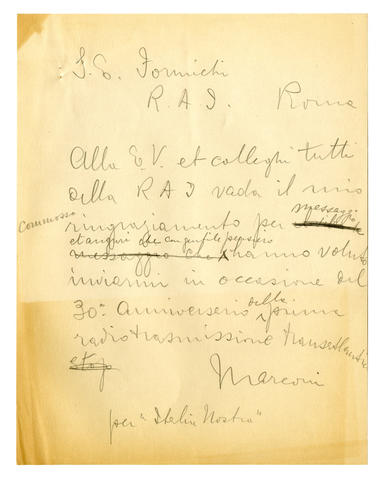 S. E. Formichi
R. A. I. Roma
Alla E. V. et colleghi tutti
della R A I vada il mio
commosso ringraziamento per messaggio
et auguri che con gentile pensiero
messaggio che hanno voluto
inviarmi in occasione del
30º anniversario della prima
radiotrasmissione transatlantica
stop
Marconi
per "Italia Nostra"